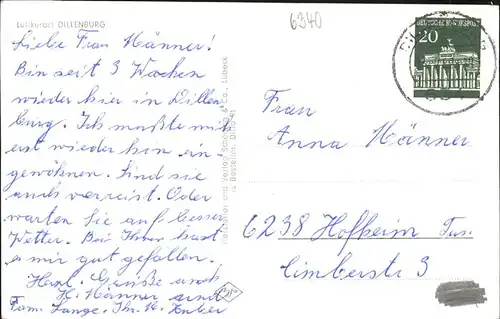 Luftkurort DILLENBURG
6340
Liebe Frau Männer!
Bin seit 3 Wochen
wieder hier in Dillen-
burg. Ich mußte mich
erst wieder hier ein-
gewöhnen. Sind sie
auch verreist. Oder
warten Sie auf besser
Wetter. Bei Ihnen hast
es mir gut gefallen.
Herzl. Grüße auch
H. Männer und
Fam. Lange. Ihr K. Huber
DEUTSCHE BUNDESPOST
20
Frau
Anna Männer
6238 Hofheim Tus.
Cimberstr 3